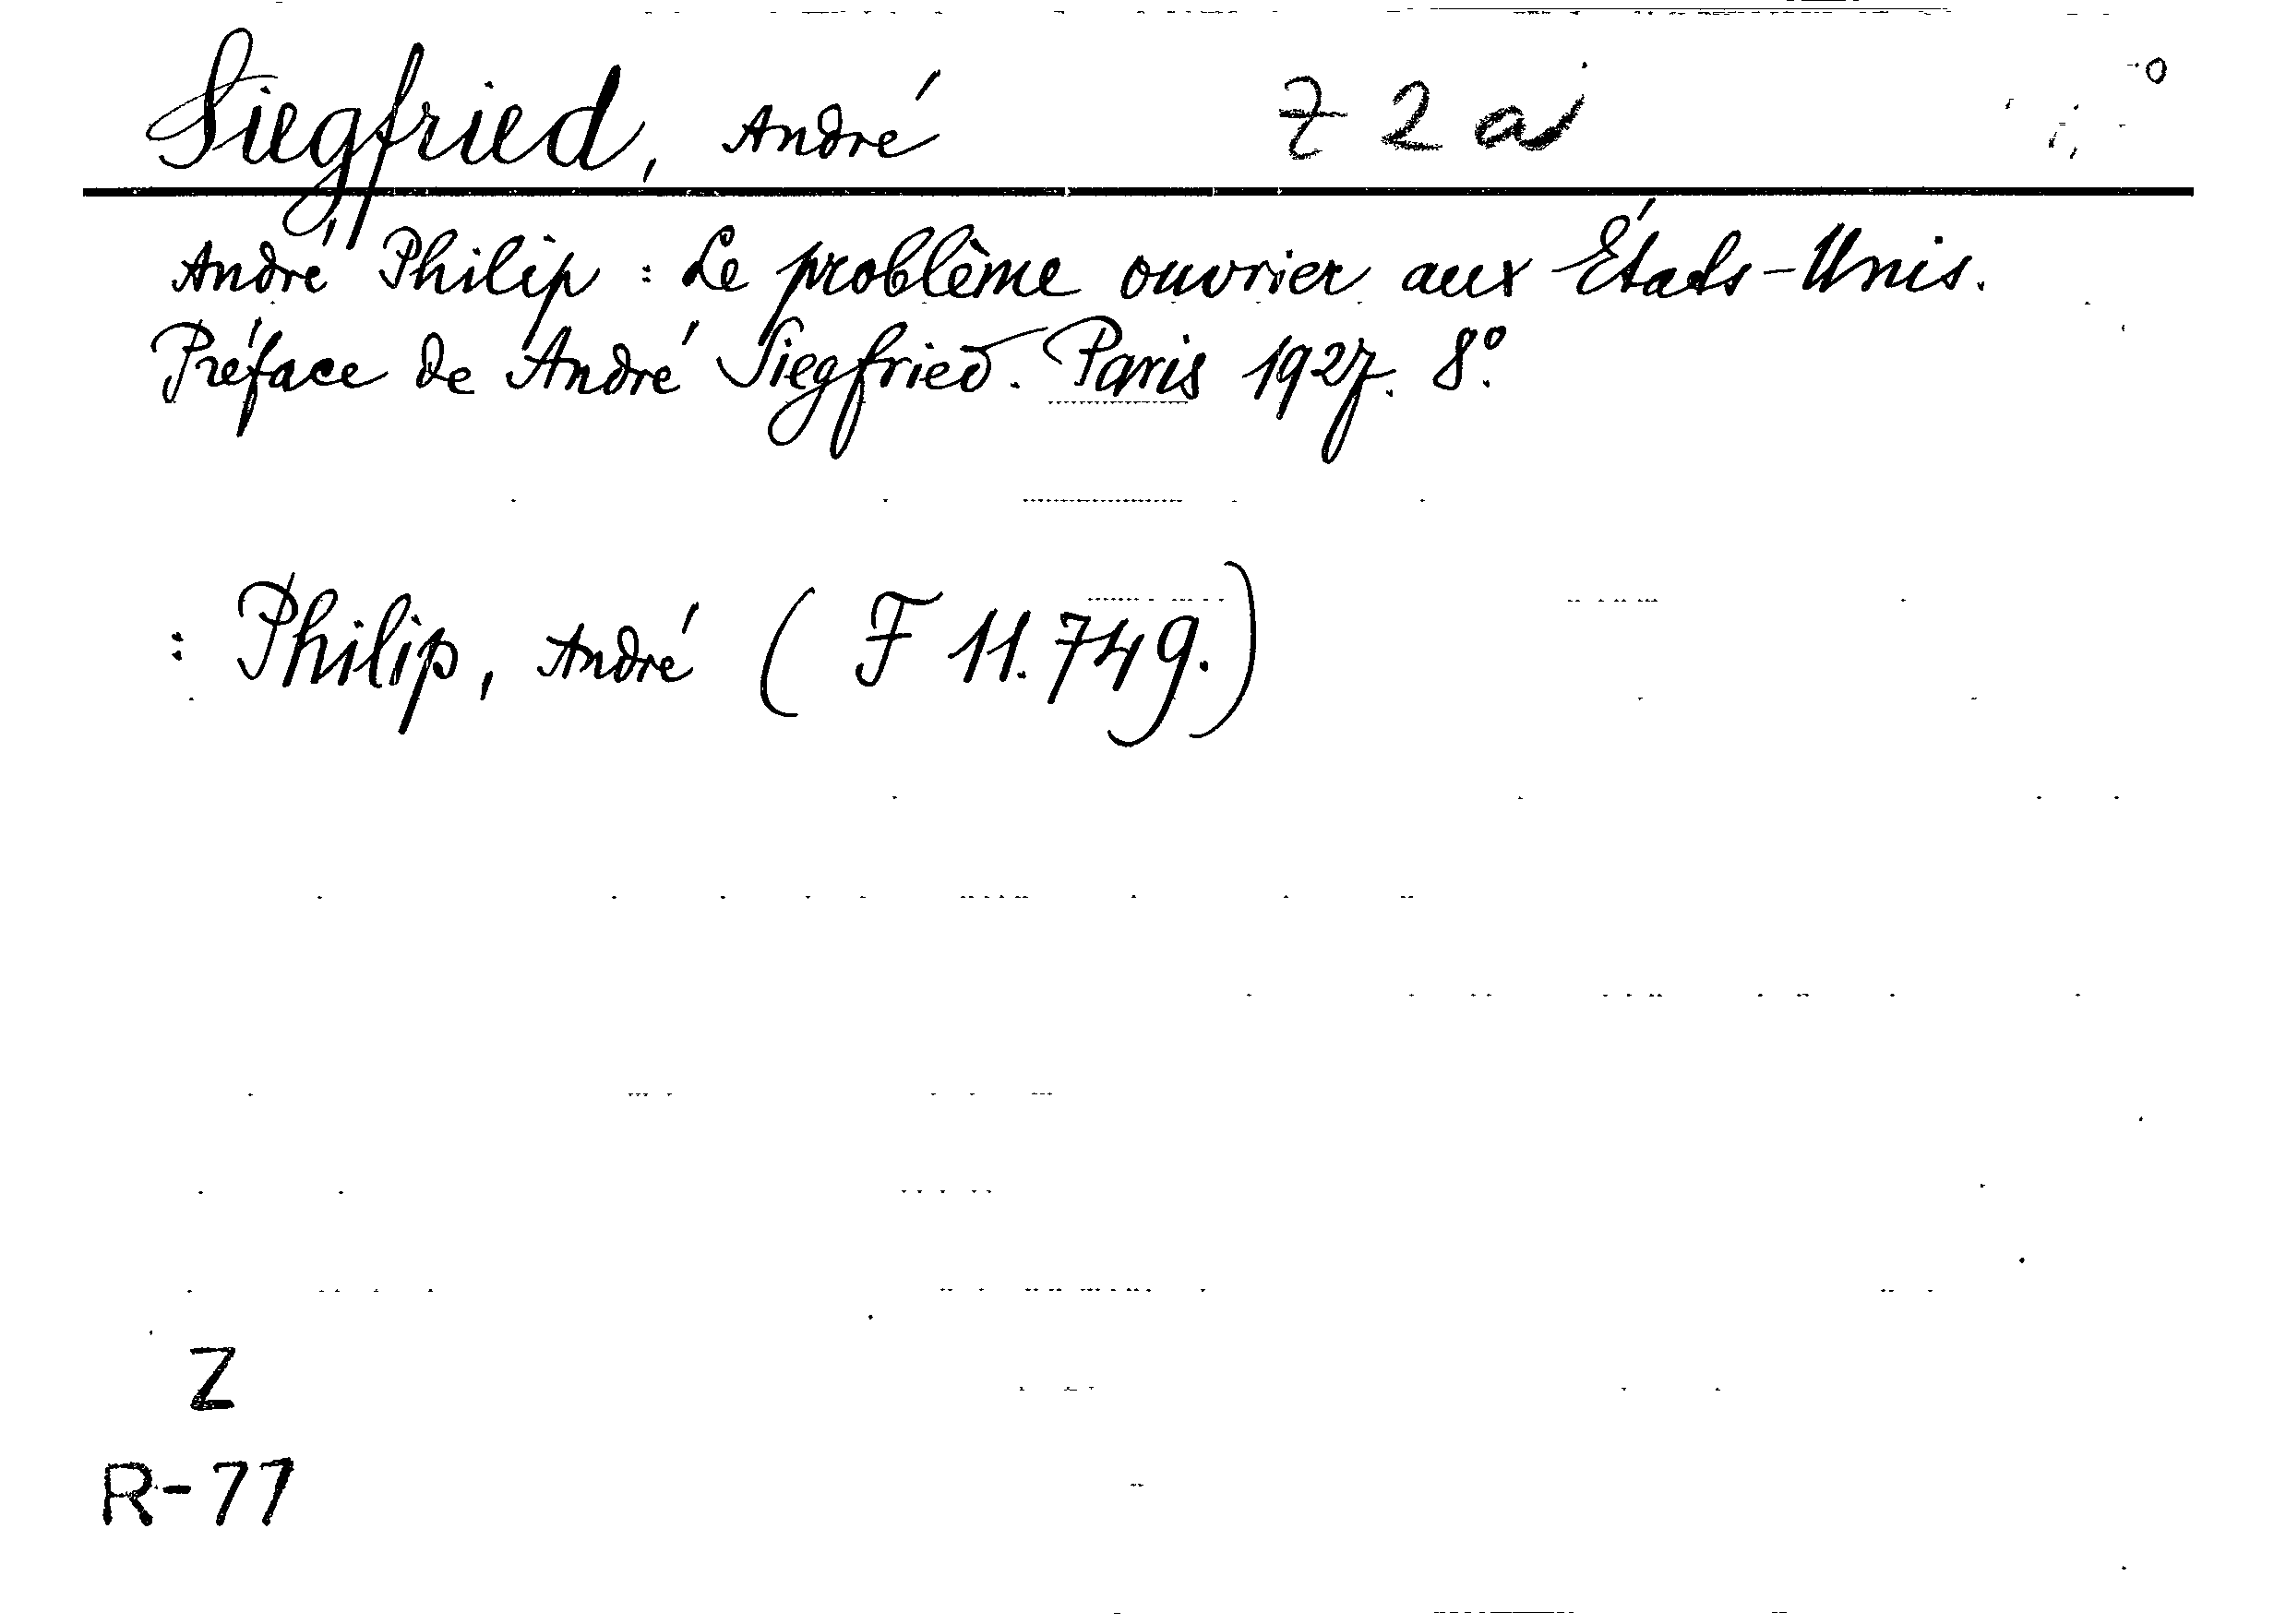 Siegfried, André Z 2 a
André Philip : Le problème ouvrier aux États-Unis.
Préface de André Siegfried. Paris 1927. 8°.
: Philip, André ( F 11.749.)
Z
R-77